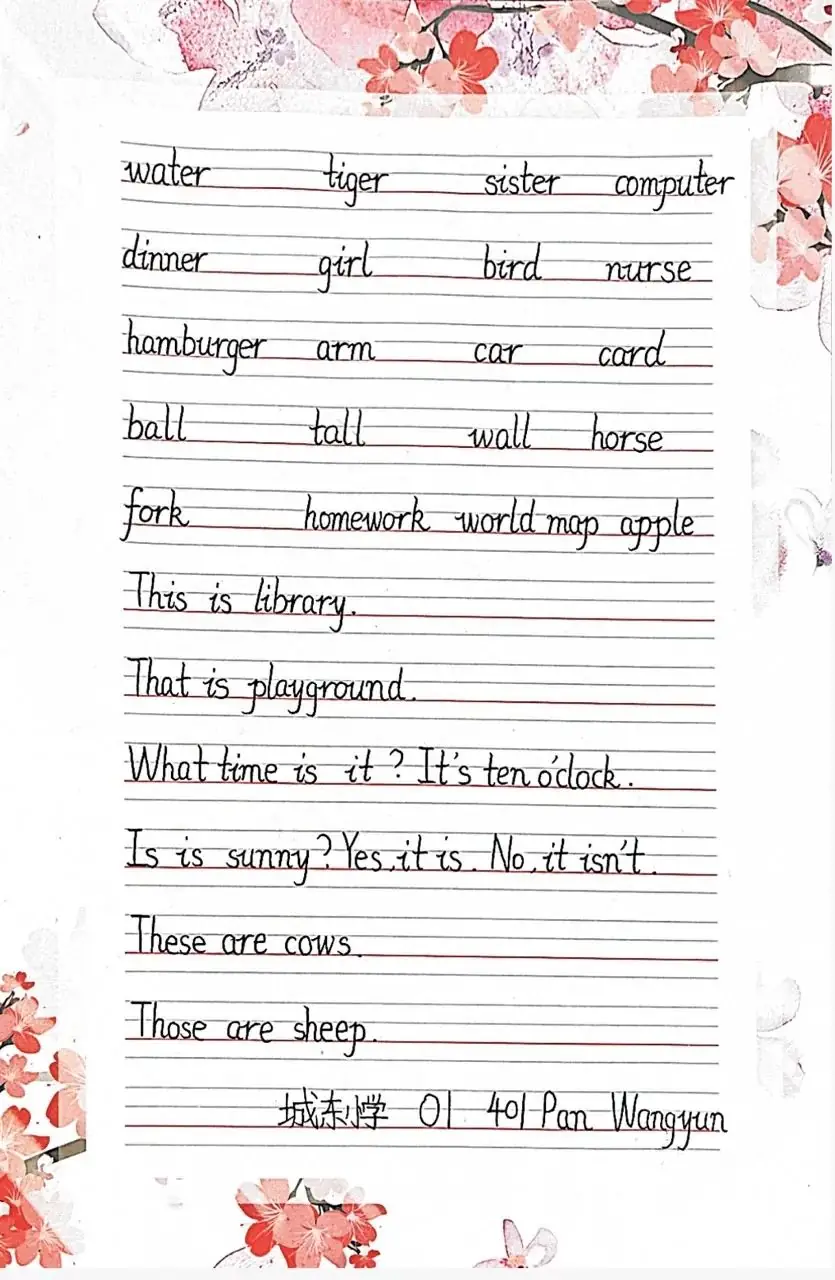 water tiger sister computer
dinner girl bird nurse
hamburger arm car card
ball tall wall horse
fork homework world map apple
This is library.
That is playground.
What time is it? It's ten o'clock.
Is is sunny? Yes, it is. No, it isn't.
These are cows.
Those are sheep.
城东小学 01 401 Pan Wangyun